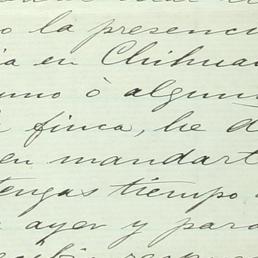 o la presenci
ia en Chihua
uno ò algun
finca, he d
en mandart
tengas tiempo
ayer y para